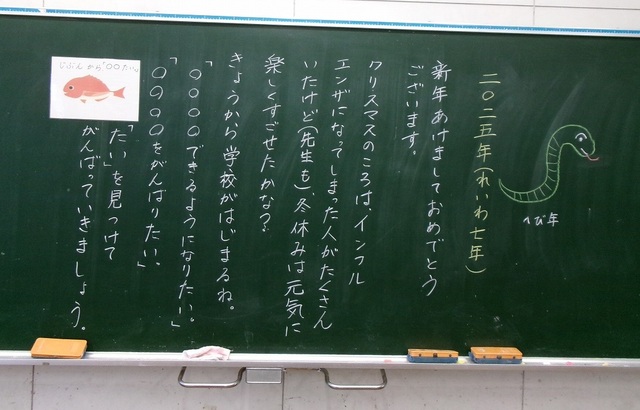 へび年
二〇二五年(れいわ七年)
新年あけましておめでとう
ございます。
クリスマスのころは、インフル
エンザになってしまった人がたくさん
いたけど(先生も)、冬休みは元気に
楽しくすごせたかな?
きょうから学校がはじまるね。
「〇〇〇〇できるようになりたい。」
「〇〇〇〇をがんばりたい。」
「たい」を見つけて
がんばっていきましょう。
じぶんから〇〇たい